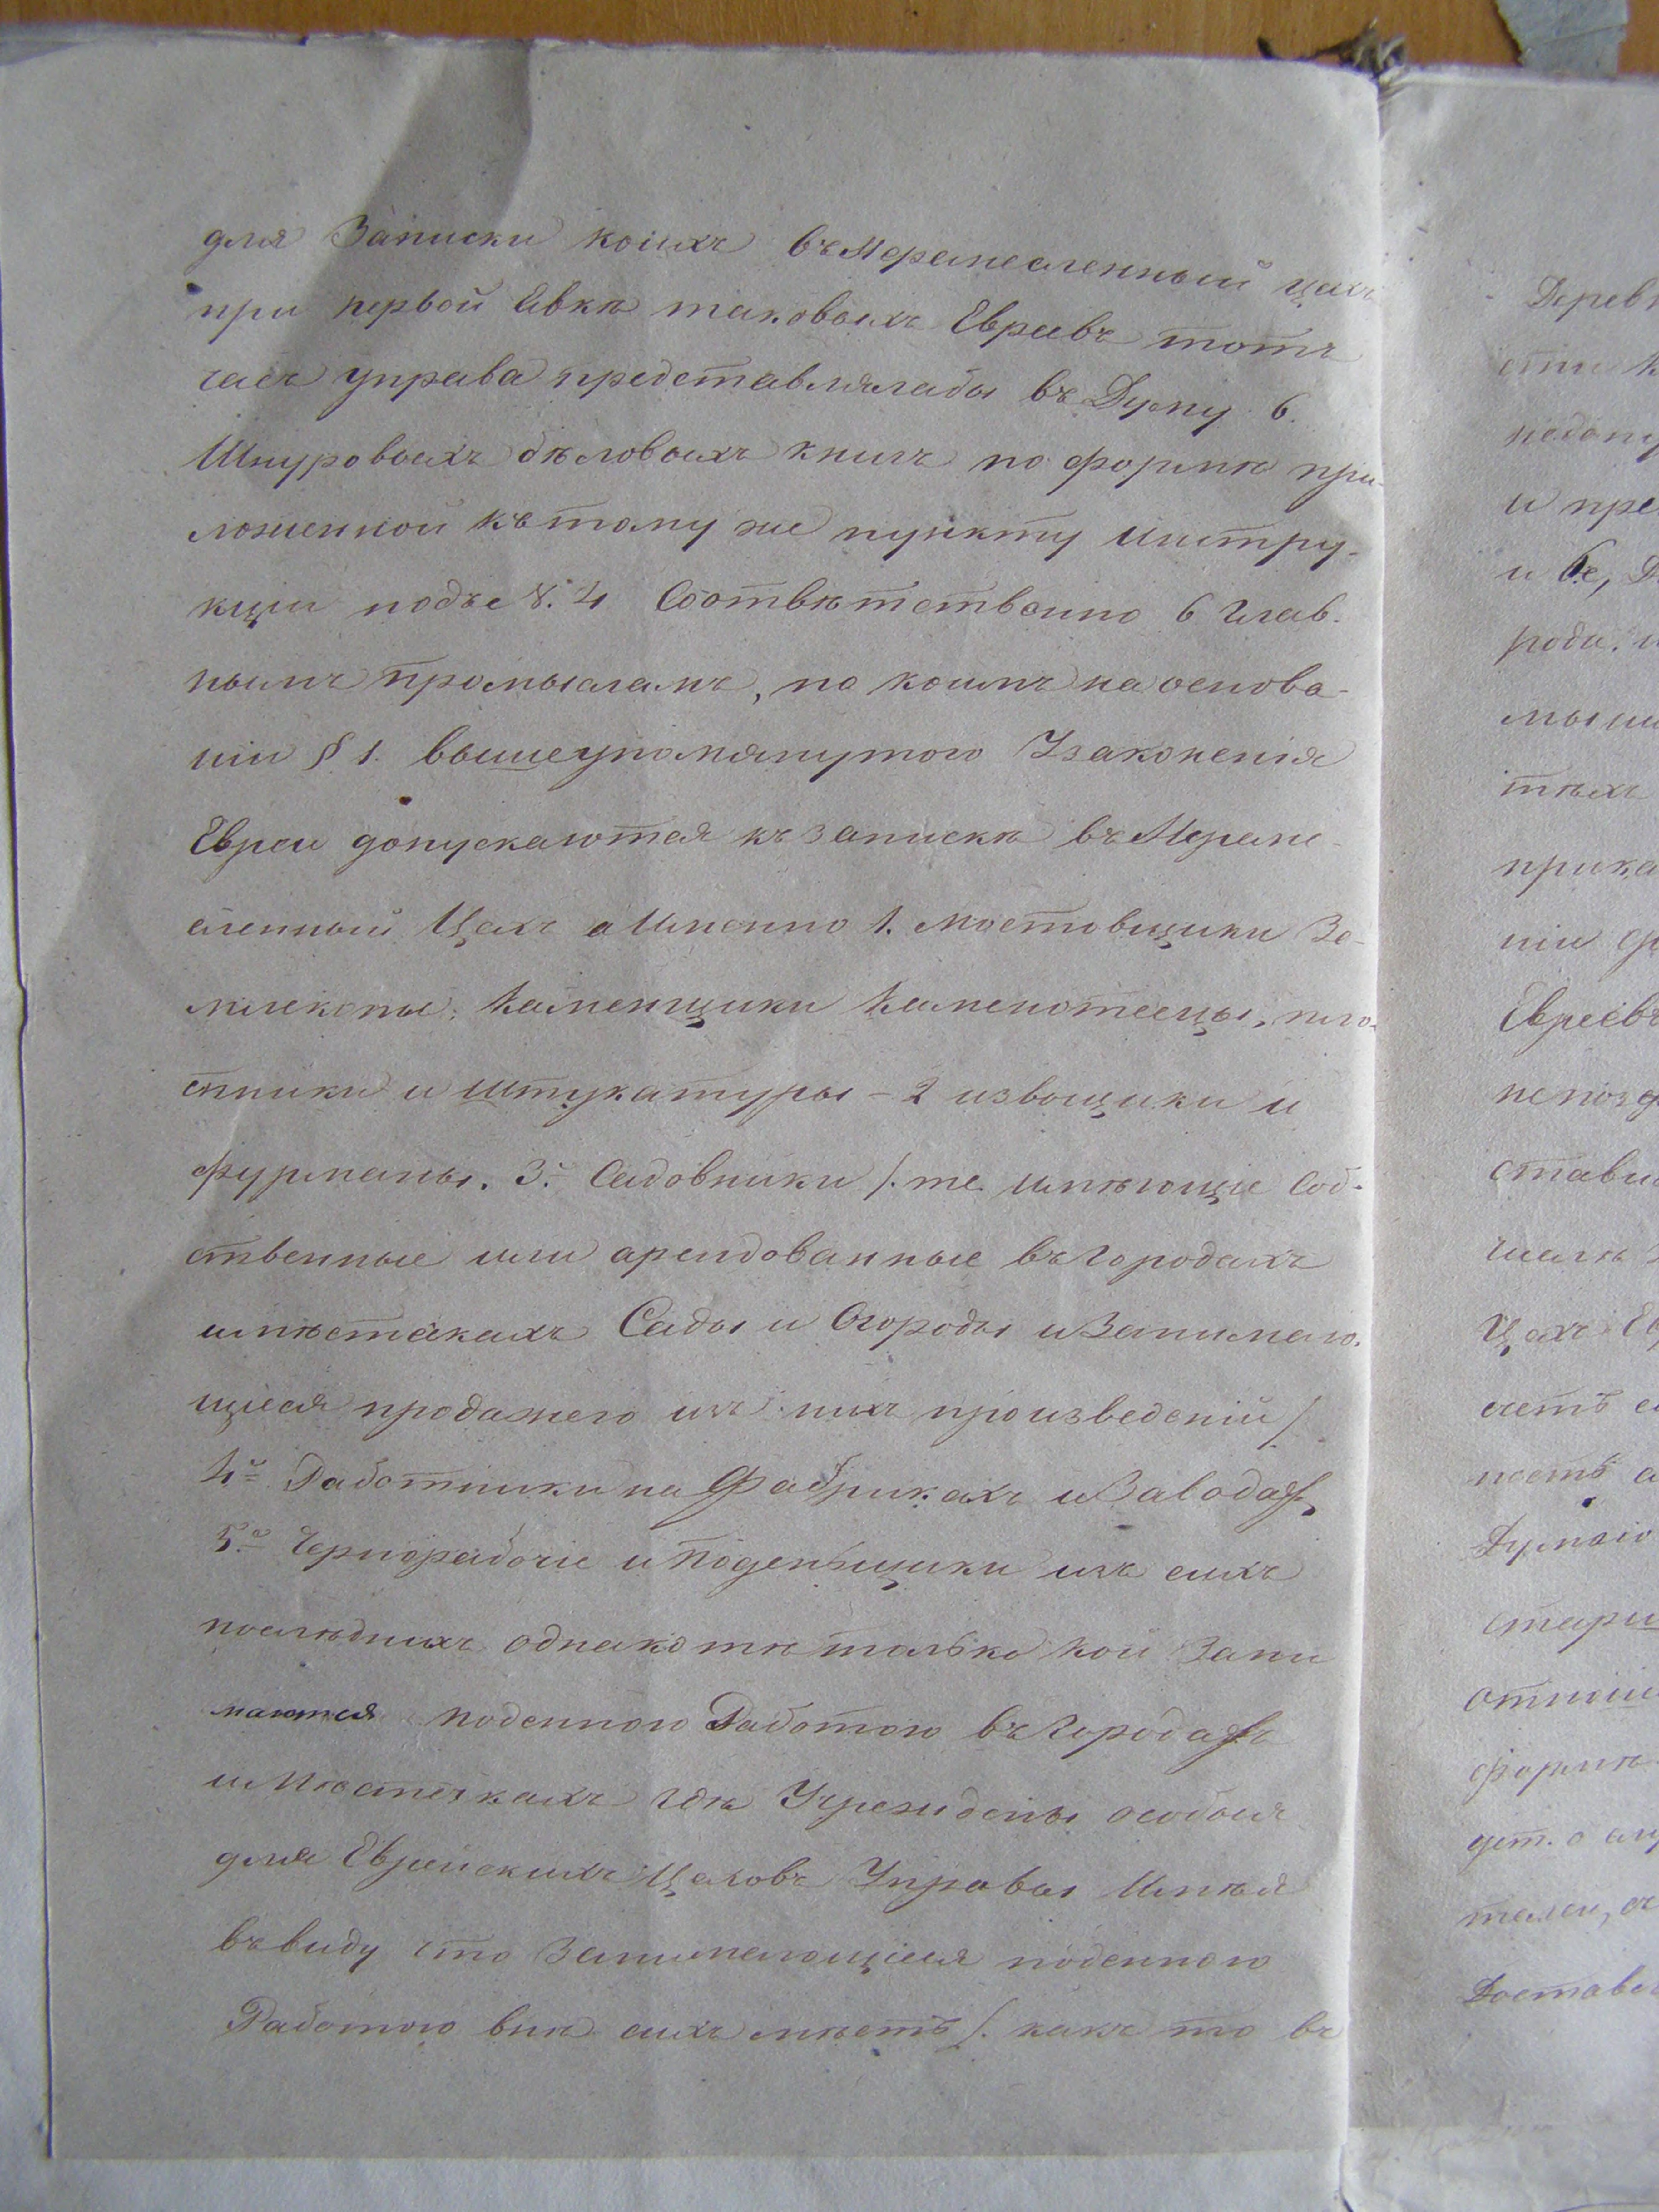 для Записки коихъ въ Неремесленный цехъ
при первой Явкѣ таковыхъ Евреевъ тотъ
часъ управа представлялабы въ Думу 6.
Шнуровыхъ бѣловыхъ книгъ по формѣ при-
ложенной къ тому же пункту инстру-
кціи подъ № 4 Соотвѣтственно 6 Глав-
нымъ промысламъ, по коимъ на основа-
ніи § 1. вышеупомянутого Узаконенія
Евреи допускаются къ запискѣ въ Нереме-
сленный Цехъ а Именно 1. мостовщики Зе-
млекопы, Каменщики Каменотесцы, пло-
тники и штукатуры – 2 извощики и
фурманы. 3. Садовники /. те имѣющіе Соб-
ственные или арендованные въ Городахъ
и мѣстекахъ Сады и Огороды и Занимаю-
щіеся продажего изъ нихъ произведеній /.
4й Работники на Фабрикахъ и Заводахъ
5й Чернорабочіе и Поденьщики изъ сихъ
послѣднихъ однако тѣ только кои Зани
маются поденною Работою въ Городахъ
и Мѣстечкахъ гдѣ Учреждены особыя
для Еврейскихъ Цеховъ Управы Имѣя
въ виду что Занимающіеся поденною
Работою внѣ сихъ мѣстъ /. какъ то въ
Деревн
сти к
и пре
роди. и
мыш
тѣхъ
прика
ніи
Евреевъ
непозд
стави
Цехъ Ев
четъ
ность
Думою
стари
отнош
формѣ
Доставл